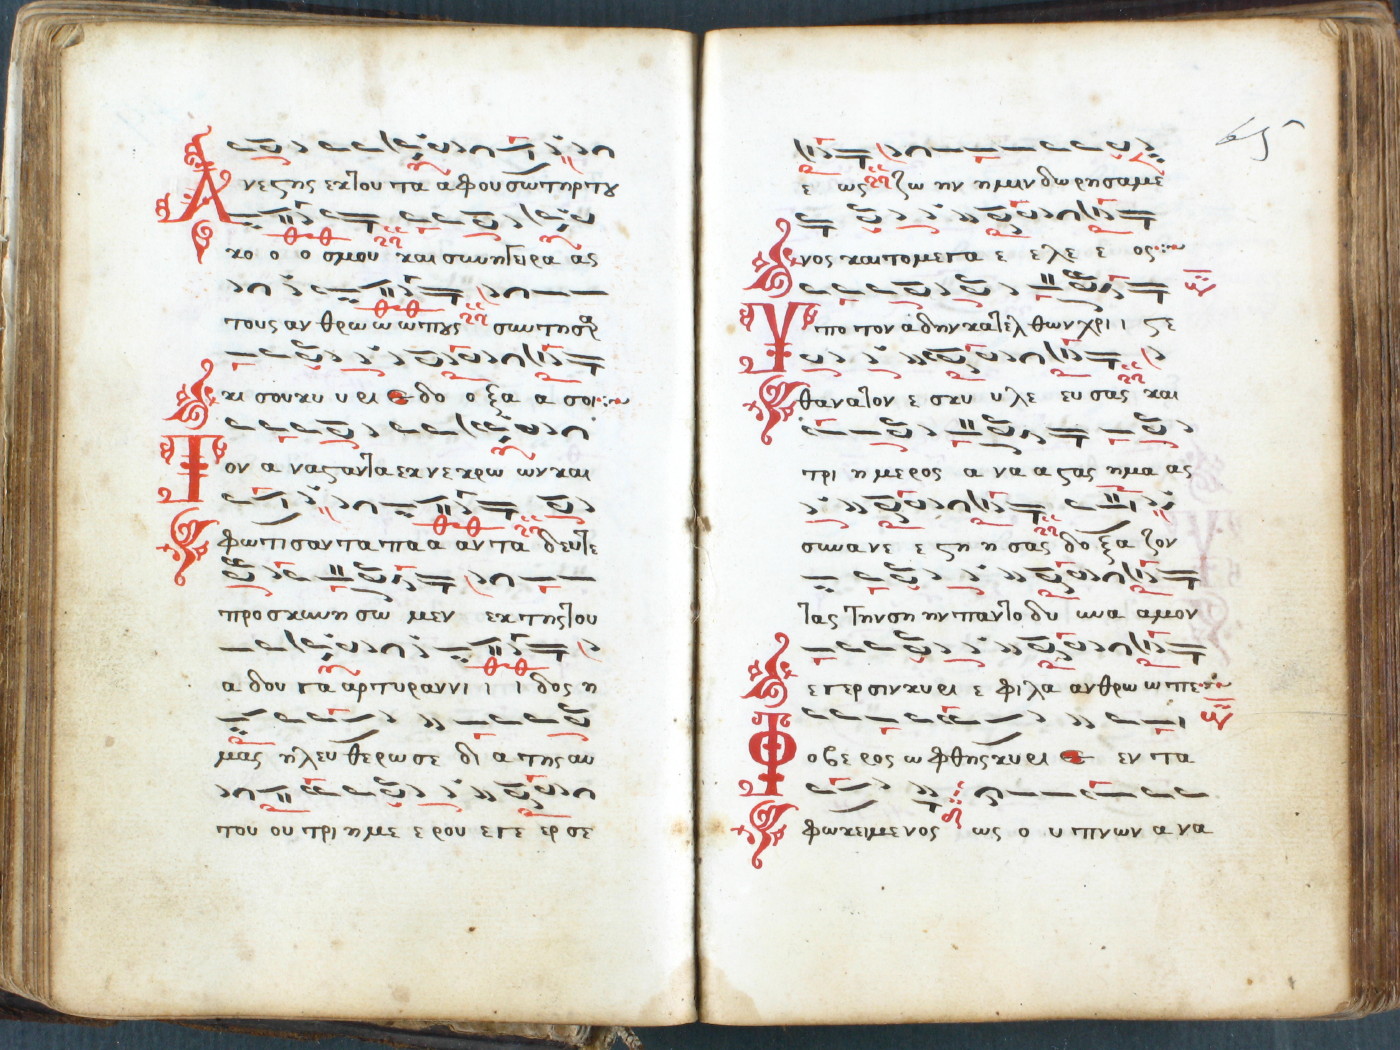 Ανεστης εκ του τα α φου σωτηρ του
κο ο ο σμου και συνηγειρα ας
τους αν θρω ω ω πους συν τη σαρ
κι σου κυ υ ρι ε δο ο ξα α σοι
Τον α νασταντα εκ νε κρω ων και
φωτισαν τα πα α αν τα δευτε
προσκυνη σω μεν εκ της του
α δου τυ αρ τυραννι ι ι δος η
μας ηλευ θερωσε δι α της αυ
του ου τρι ημε ε ρου εγε ερ σε
ε ως ζω ην ημιν δωρησαμε
νος και το μεγα ε ε λε ε ος
Υπο τον αδην κατελ θων χρι ι στε
θανατον ε σκυ υ λε ευσας και
τρι ημερος α να α στας ημα ας
συνανε ε στη η σας δο ξα ζον
τας την ση ην παντο δυ υνα αμον
εγερσιν κυρι ε φιλα ανθρω ωπε
Φοβε ρος ωφθης κυρι ε εν τα
φω κειμενος ως ο υπνων α να